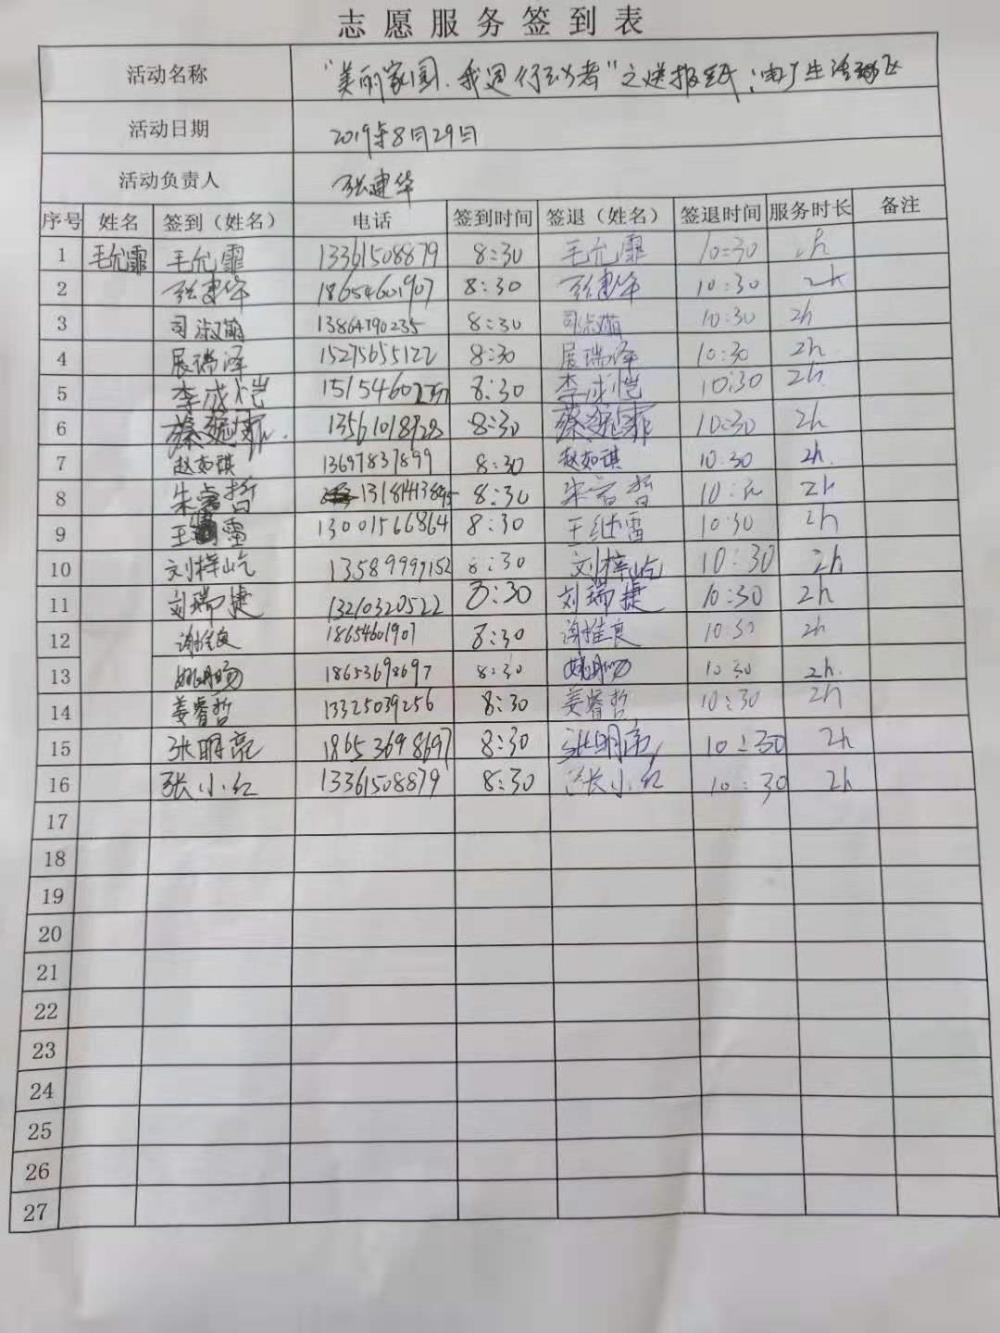 志愿服务签到表
活动名称 “美丽家园.我是行动者”之送报纸
活动日期 2019年8月29日
活动负责人 张建华
序号 姓名 签到（姓名） 电话 签到时间 签退（姓名） 签退时间 服务时长 备注
1 毛允霏 毛允霏 13361508879 8:30 毛允霏 10:30 2h
2 张建华 18654601907 8:30 张建华 10:30 2h
3 司淑萌 13864790235 8:30 司淑萌 10:30 2h
4 展瑞泽 15275655122 8:30 展瑞泽 10:30 2h
5 李成恺 8:30 李成恺 10:30 2h
6 8:30 10:30 2h
7 赵如祺 13697837899 8:30 赵如祺 10.30 2h.
8 朱睿哲 8:30 朱睿哲 2h
9 13001566864 8:30 10:30 2h
10 刘梓屹 13589997152 8:30 刘梓屹 10:30 2h
11 刘瑞捷 13210320522 8:30 刘瑞捷 10:30 2h
12 谢维良 18654601907 8:30 谢维良 10:30 2h
13 18653698697 8:30 10:30 2h.
14 姜睿哲 13325039256 8:30 姜睿哲 10:30 2h
15 张明亮 18653698697 8:30 张明亮 10:30 2h
16 张小红 13361508879 8:30 张小红 10:30 2h
17
18
19
20
21
22
23
24
25
26
27